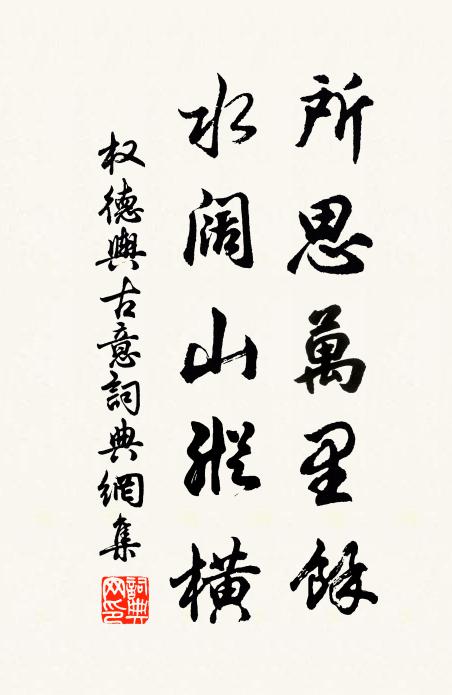 所思萬里餘
水阔山縱橫
权德輿古意詞典網集
詞典网印